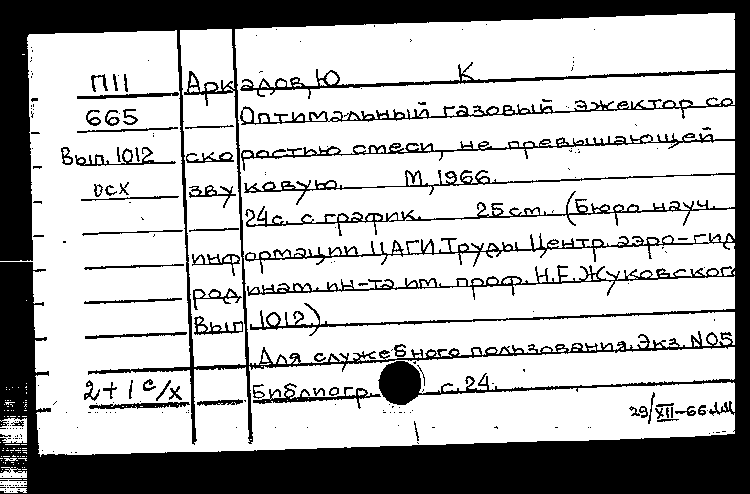 П11 Аркадов, Ю К
665 Оптимальный газовый эжектор со
Вып. 1012 скоростью смеси, не превышающей
осх звуковую. М, 1966.
24с. с график. 25 cm. (Бюро науч.
информации ЦАГИ. Труды Центр. аэро-гид
родинам. ин-та им. проф. Н.Е. Жуковского
Вып 1012).
Для служебного пользования. Экз. N05
2+1 с/х Библиогр. с. 24.
29/XII-66